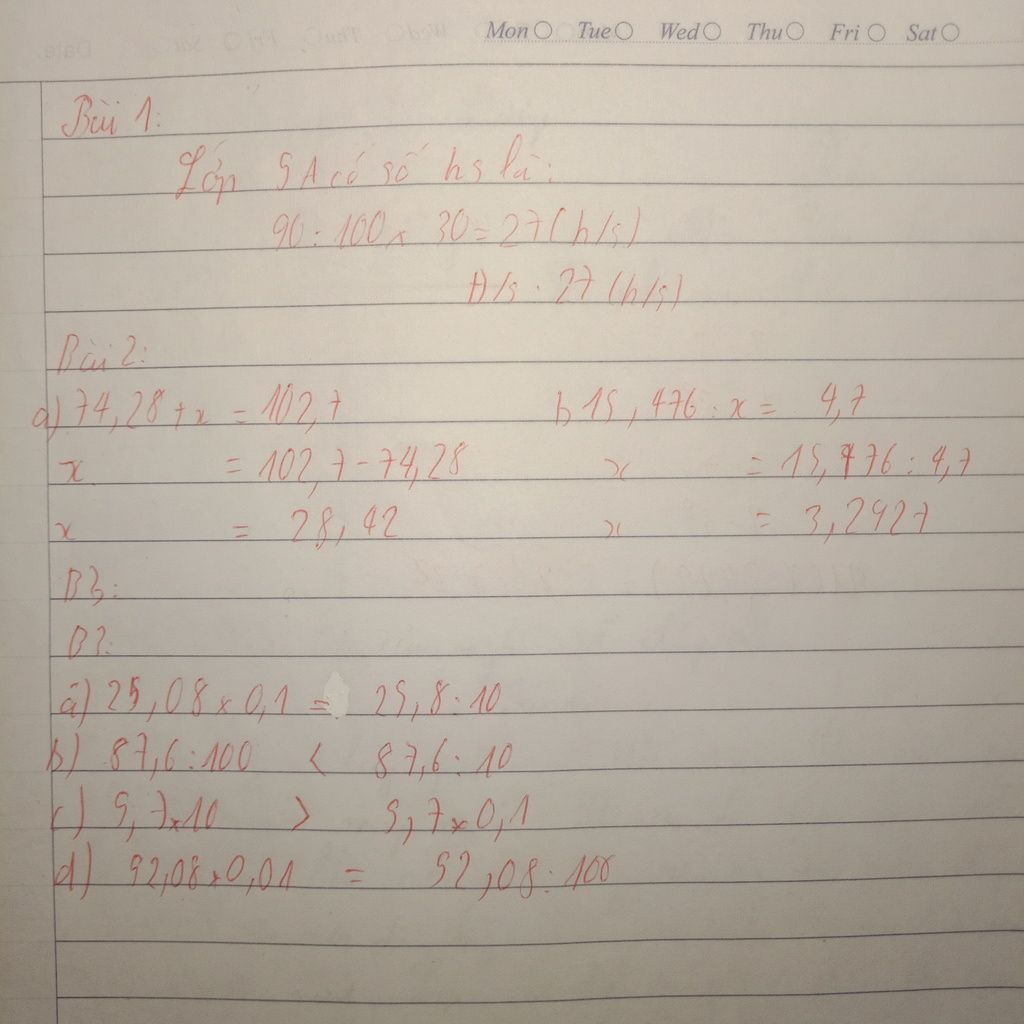 Mon Tue Wed Thu Fri Sat
Bài 1:
Lớp 5A có số hs là:
90 : 100 x 30 = 27 (h/s)
Đ/s : 27 (h/s)
Bài 2:
a) 74,28 + x = 102,7 b 15,476 : x = 4,7
x = 102,7 - 74,28 x = 15,476 : 4,7
x = 28,42 x = 3,2927
B3:
B3:
a) 25,08 x 0,1 = 25,8 : 10
b) 87,6 : 100 < 87,6 : 10
c) 5,7 x 10 > 5,7 x 0,1
d) 92,08 x 0,01 = 92,08 : 100